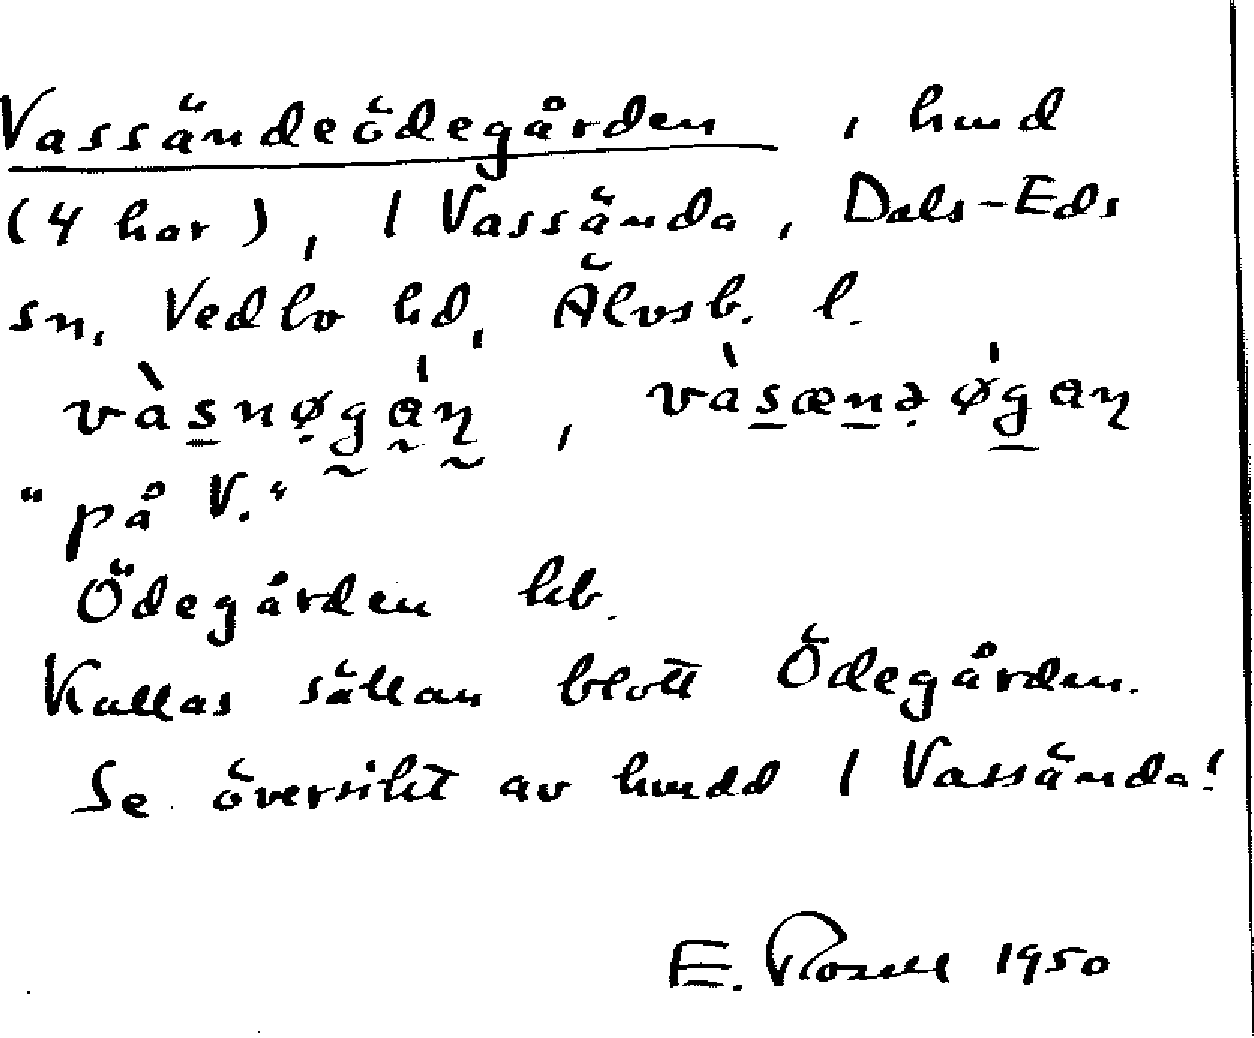 Vassändeödegården, hmd
(4 har), / Vassända, Dals-Eds
sn, Vedbo hd, Älvsb. l.
và̀snøgáŋ, và̀sænəøgaŋ
"på V."
Ödegården kb.
Kallas sällan blott Ödegården.
Se översikt av hmdd / Vassända!
E. Rosell 1950